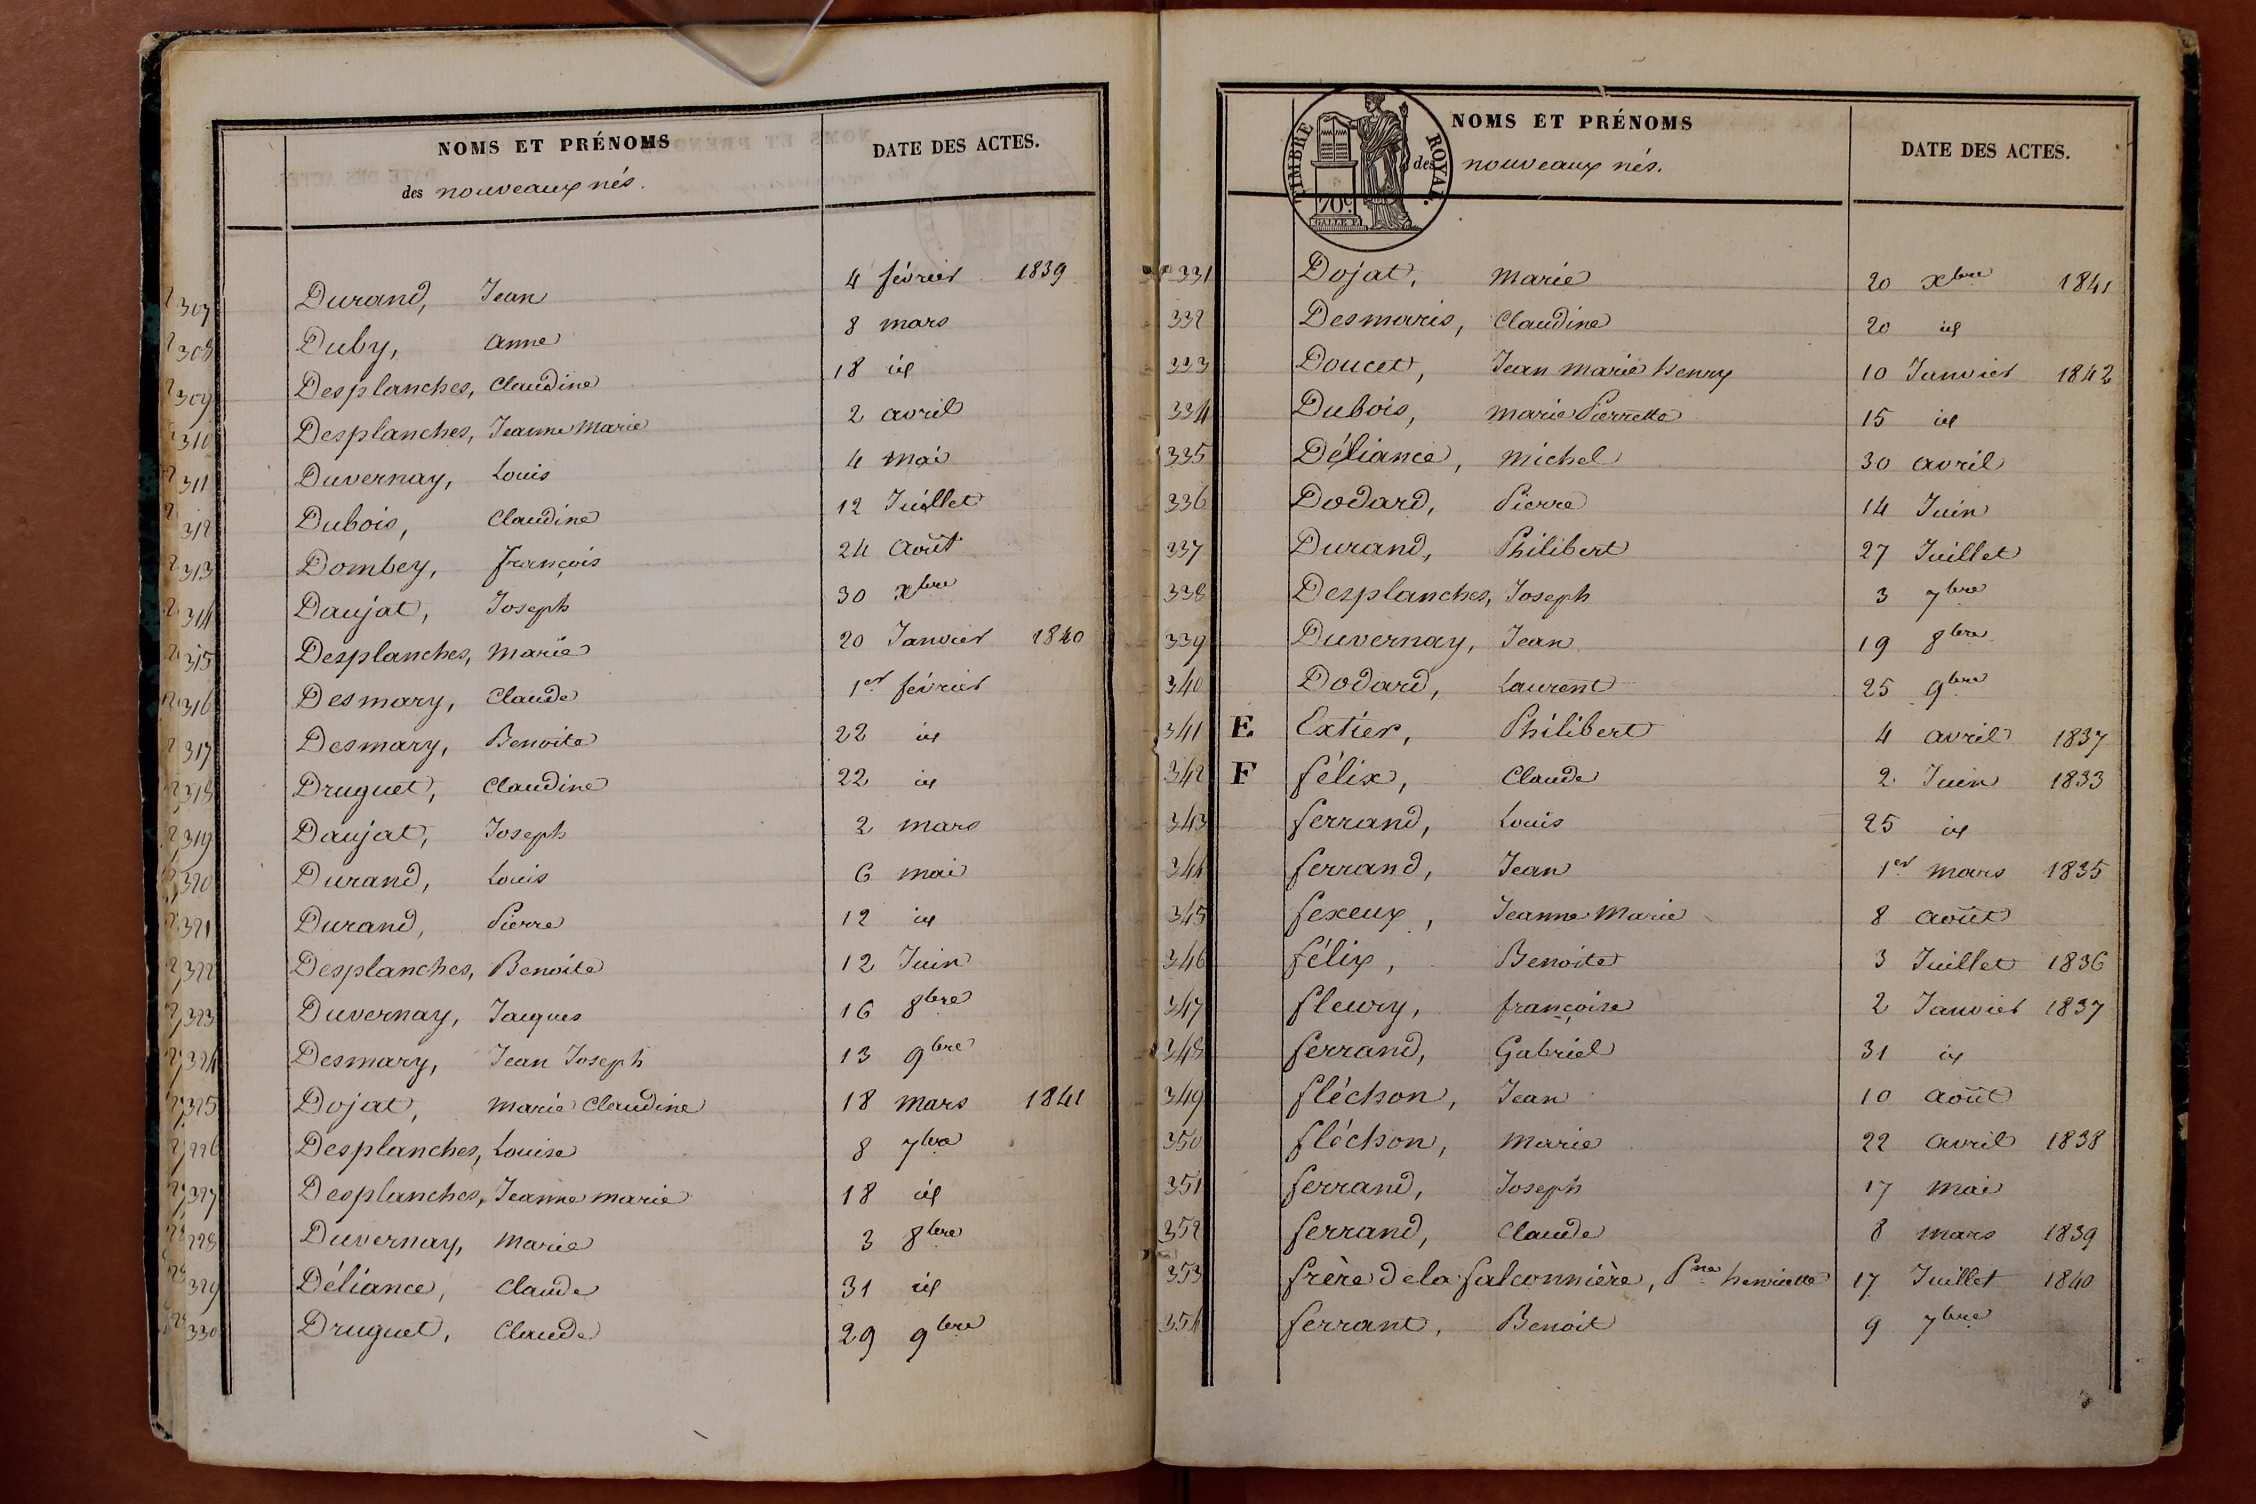 NOMS ET PRÉNOMS
des nouveaux nés.
DATE DES ACTES.
307 Durand, Jean 4 février 1839
308 Duby, Anne 8 mars
309 Desplanches, Claudine 18 id
310 Desplanches, Jeanne Marie 2 avril
311 Duvernay, Louis 4 mai
312 Dubois, Claudine 12 Juillet
313 Dombey, François 24 Août
314 Daujat, Joseph 30 Xbre
315 Desplanches, Marie 20 Janvier 1840
316 Desmary, Claude 1er février
317 Desmary, Benoite 22 id
318 Druguet, Claudine 22 id
319 Daujat, Joseph 2 mars
320 Durand, Louis 6 mai
321 Durand, Pierre 12 id
322 Desplanches, Benoite 12 Juin
323 Duvernay, Jacques 16 8bre
324 Desmary, Jean Joseph 13 9bre
325 Dojat, Marie Claudine 18 mars 1841
326 Desplanches, Louise 8 7bre
327 Desplanches, Jeanne Marie 18 id
328 Duvernay, Marie 3 8bre
329 Déliance, Claude 31 id
330 Druguet, Claude 29 9bre
NOMS ET PRÉNOMS
des nouveaux nés.
DATE DES ACTES.
TIMBRE ROYAL.
70c
331 Dojat, Marie 20 Xbre 1841
332 Desmaris, Claudine 20 id
333 Doucet, Jean Marie henry 10 Janvier 1842
334 Dubois, Marie Pierrette 15 id
335 Déliance, Michel 30 avril
336 Dodard, Pierre 14 Juin
337 Durand, Philibert 27 Juillet
338 Desplanches, Joseph 3 7bre
339 Duvernay, Jean 19 8bre
340 Dodard, Laurent 25 9bre
341 E Extier, Philibert 4 avril 1837
342 F félix, Claude 2 Juin 1833
343 ferrand, Louis 25 id
344 ferrand, Jean 1er mars 1835
345 fexeux, Jeanne Marie 8 Août
346 félix, Benoite 3 Juillet 1836
347 fleury, françoise 2 Janvier 1837
348 ferrand, Gabriel 31 id
349 fléchon, Jean 10 Août
350 fléchon, Marie 22 avril 1838
351 ferrand, Joseph 17 mai
352 ferrand, Claude 8 mars 1839
353 frère de la falconnière, Pne henriette 17 Juillet 1840
354 ferrant, Benoit 9 7bre